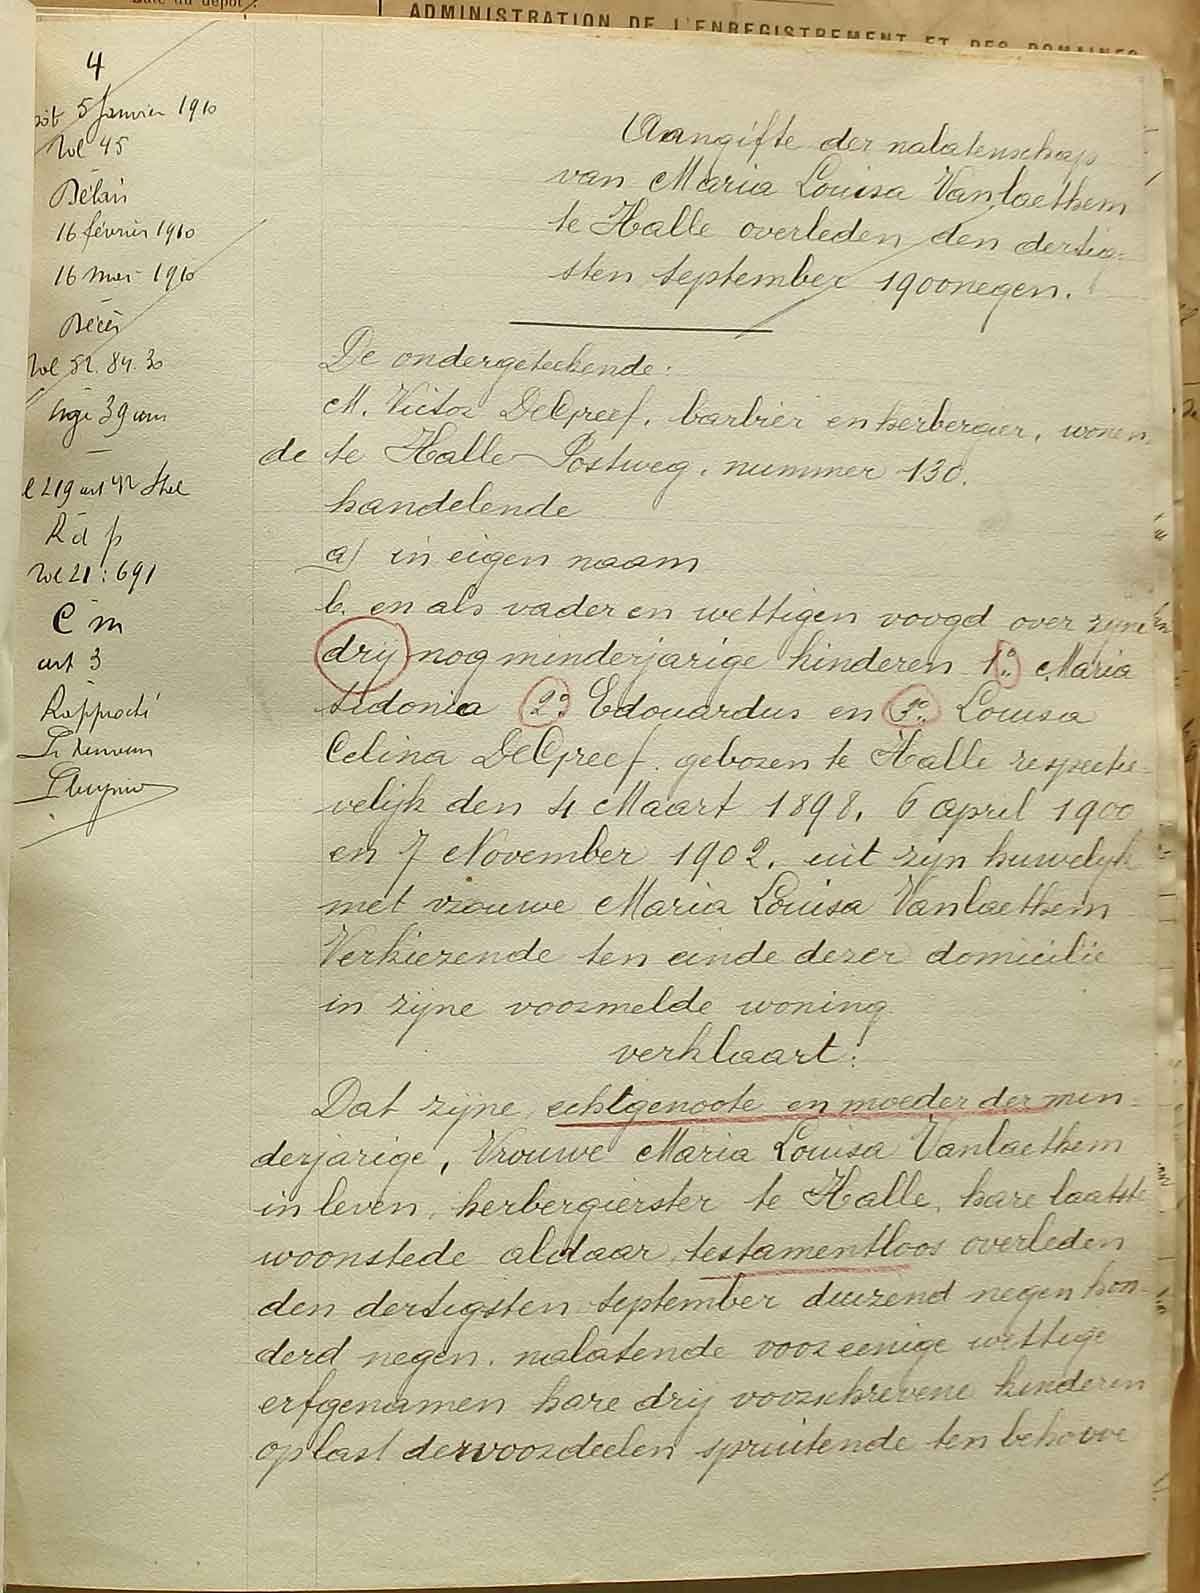 Date du dépôt :
ADMINISTRATION DE L'ENREGISTREMENT ET DES DOMAINES
4
5 Janvier 1910
Vol 45
Délai
16 février 1910
16 mai 1910
Décès
Vol 52. 84. 30
âgée 39 ans
219 art 42
R d p
Vol 21 : 691
C m
art 3
Rapproché
Aangifte der nalatenschap
van Maria Louisa Vanlaethem
te Halle overleden den dertig-
sten september 1900negen.
De ondergeteekende :
M. Victor DeGreef, barbier en herbergier, wonen
de te Halle Postweg, nummer 130.
handelende
a) in eigen naam
b. en als vader en wettigen voogd over zijne
drij nog minderjarige kinderen 1° Maria
Sidonia 2° Edouardus en 3° Louisa
Celina DeGreef. geboren te Halle respectie-
velijk den 4 Maart 1898, 6 april 1900
en 7 November 1902, uit zijn huwelijk
met vrouwe Maria Louisa Vanlaethem
Verkiezende ten einde dezer domicilie
in zijne voormelde woning
verklaart :
Dat zijne echtgenoote en moeder der min-
derjarige, Vrouwe Maria Louisa Vanlaethem
in leven, herbergierster te Halle, hare laatste
woonstede aldaar, testamentloos overleden
den dertigsten september duizend negen hon-
derd negen, nalatende voor eenige wettige
erfgenamen hare drij voorschrevene kinderen
op last der voordeelen spruitende ten behoeve